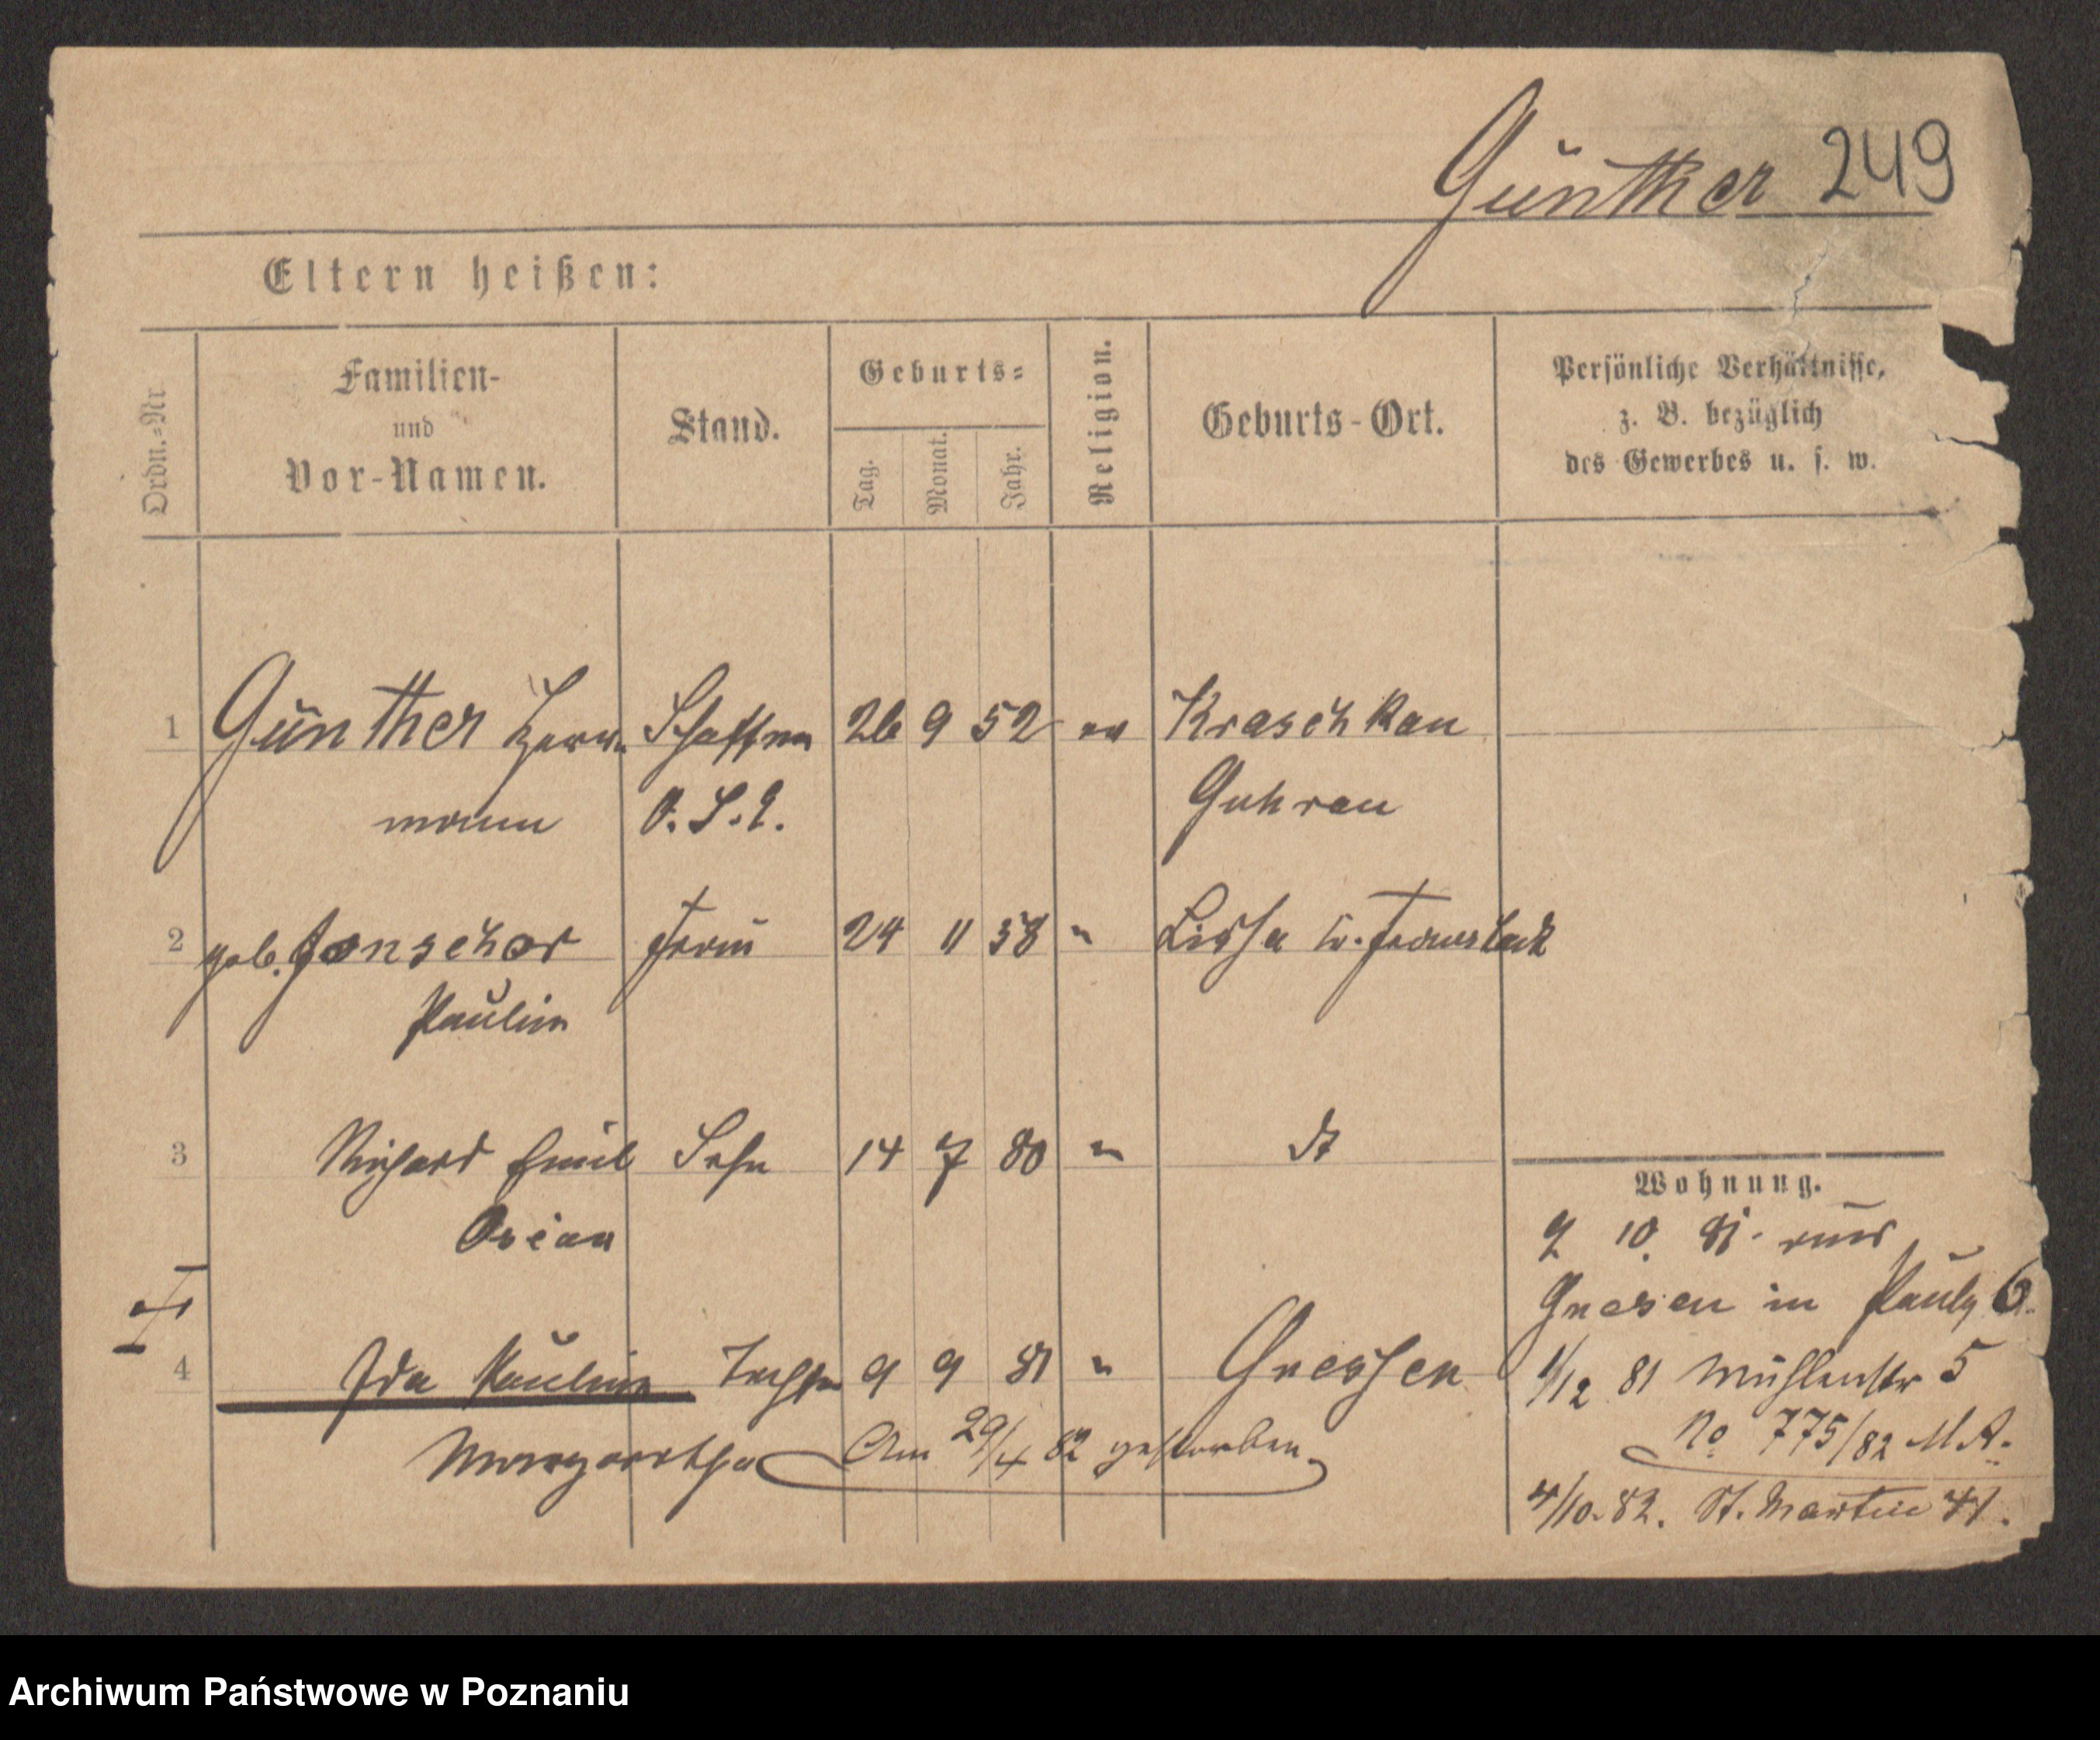 Günther 249
Eltern heißen:
Ordn.-Nr
Familien-
und
Vor-Namen.
Stand.
Geburts-
Tag.
Monat.
Jahr.
Religion.
Geburts-Ort.
Persönliche Verhältnisse,
z. B. bezüglich
des Gewerbes u. s. w.
1 Günther Herr- Schaffner 26 9 52 ev Kraschkau
mann O. S. E. Guhrau
2 geb. Jonscher Frau 24 11 58 " Lissa Kr. Fraustadt
Pauline
3 Richard Emil Sohn 14 7 80 " dt
Oscar
4 Ida Pauline Tochter 9 9 81 " Gnesen
Margaretha Am 29/4 82 gestorben
Wohnung.
9 10. 81. aus
Gnesen in Pauly 6.
1/12 81 Mühlenstr 5
No 775/82 M.A.
4/10. 82. St. Martin 41.
Archiwum Państwowe w Poznaniu